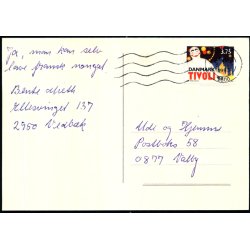 Ja, man kan selv
lave fransk nougat
Bente
Ellesvinget 137
2950 Vedbæk
3.75
DANMARK
TIVOLI
Ude og Hjemme
Postboks 58
0877 Valby